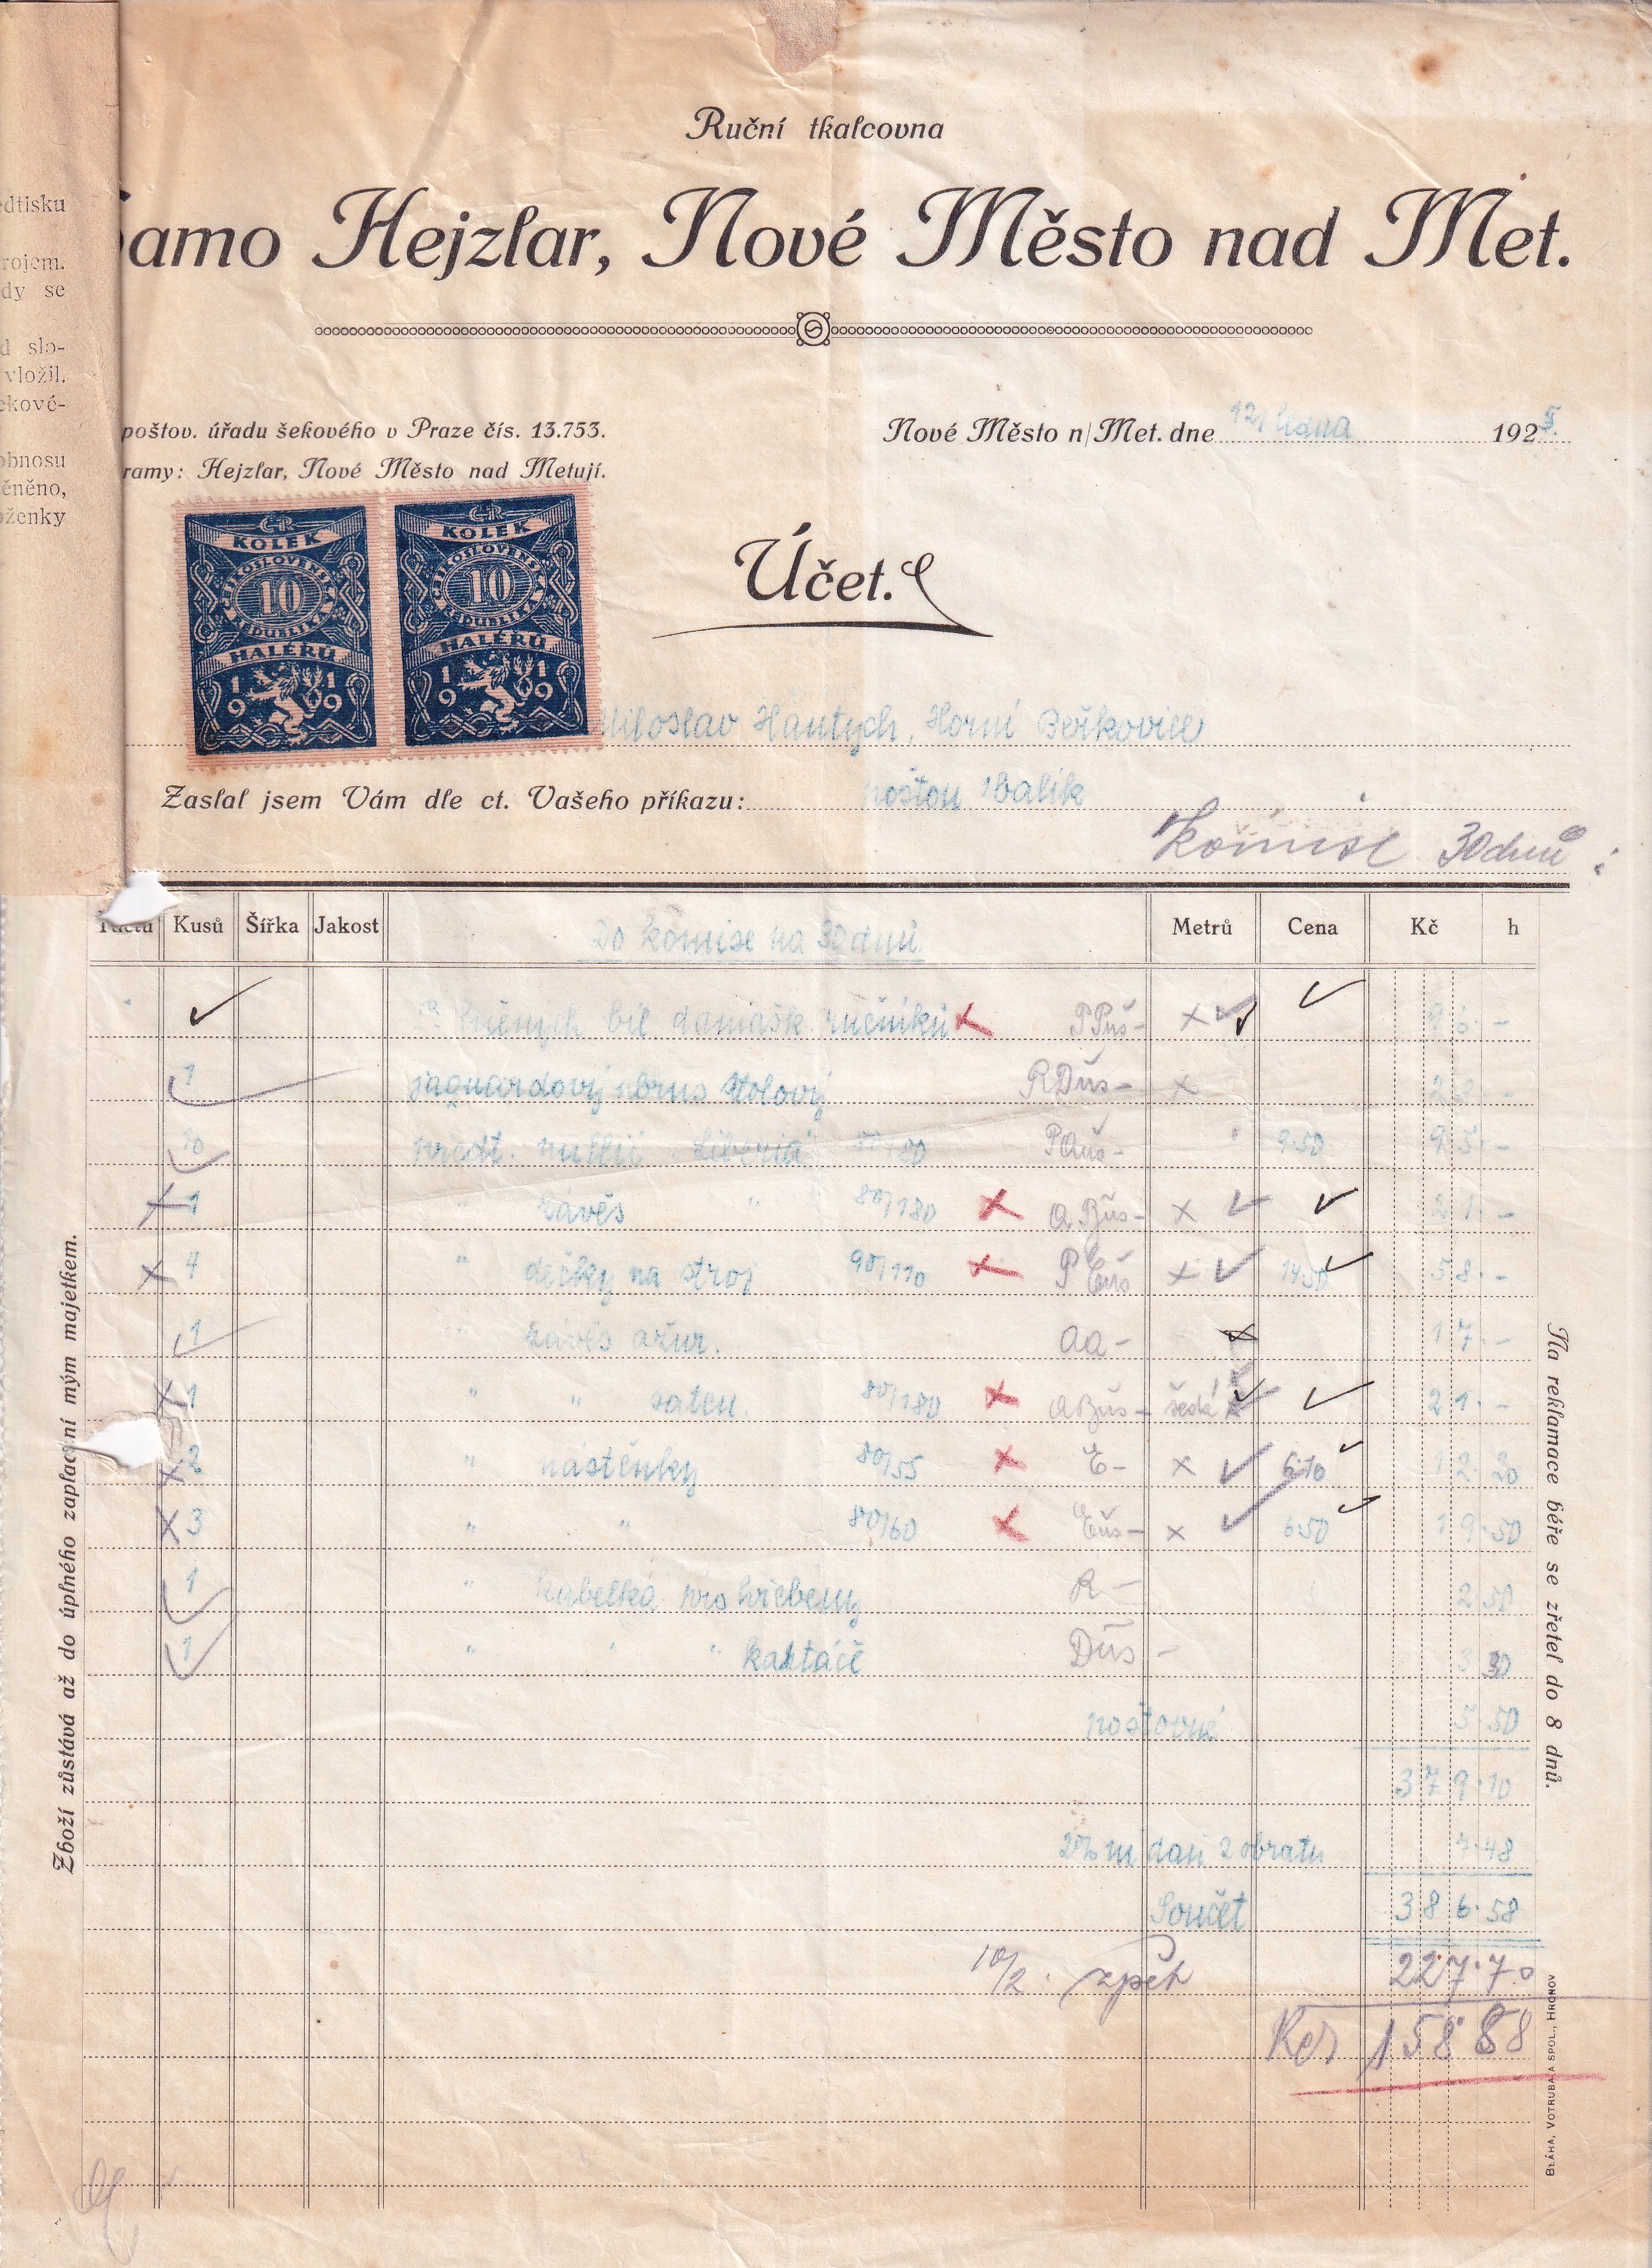 Ruční tkalcovna
amo Hejzlar, Nové Město nad Met.
edtisku
rojem.
dy se
d slo-
vložil.
ekové-
obnosu
ěněno,
oženky
poštov. úřadu šekového v Praze čís. 13.753.
ramy: Hejzlar, Nové Město nad Metují.
Nové Město n/Met. dne 12/ ledna 1925.
ČSR KOLEK ČESKOSLOVENSKÁ REPUBLIKA 10 HALÉŘŮ 1919
ČSR KOLEK ČESKOSLOVENSKÁ REPUBLIKA 10 HALÉŘŮ 1919
Účet.
Miloslav Hantych, Horní Beřkovice
Zaslal jsem Vám dle ct. Vašeho příkazu: poštou 1 balík
Komise 30 dnů
Tuctů Kusů Šířka Jakost Do komise na 30 dnů Metrů Cena Kč h
lněných bíl. damašk. ručníků PPůš- 96. -
1 jaquardový ubrus stolový RDůs- 2 -
10 předt. 80/80 POůš- 9.50 95. -
1 " závěs " 80/180 ABůs- 21. -
4 " dečky na stroj 90/110 PEůš 14.50 58. -
1 " závěs ažur. Aa- 17. -
1 " " saten. 80/180 ABůs- šedá 21. -
2 " nástěnky 80/55 E- 6.10 12. 20
3 " " 80/60 Eůs- 6.50 19.50
1 " kabelka pro hřebeny R- 2.50
1 " " " kartáče Důs- 3 30
poštovné 5.50
379.10
2% ní daň z obratu 7.48
Součet 386.58
10/2. zpět 227.70
Kčs 158 88
Zboží zůstává až do úplného zaplacení mým majetkem.
Na reklamace béře se zřetel do 8 dnů.
BLÁHA, VOTRUBA A SPOL., HRONOV